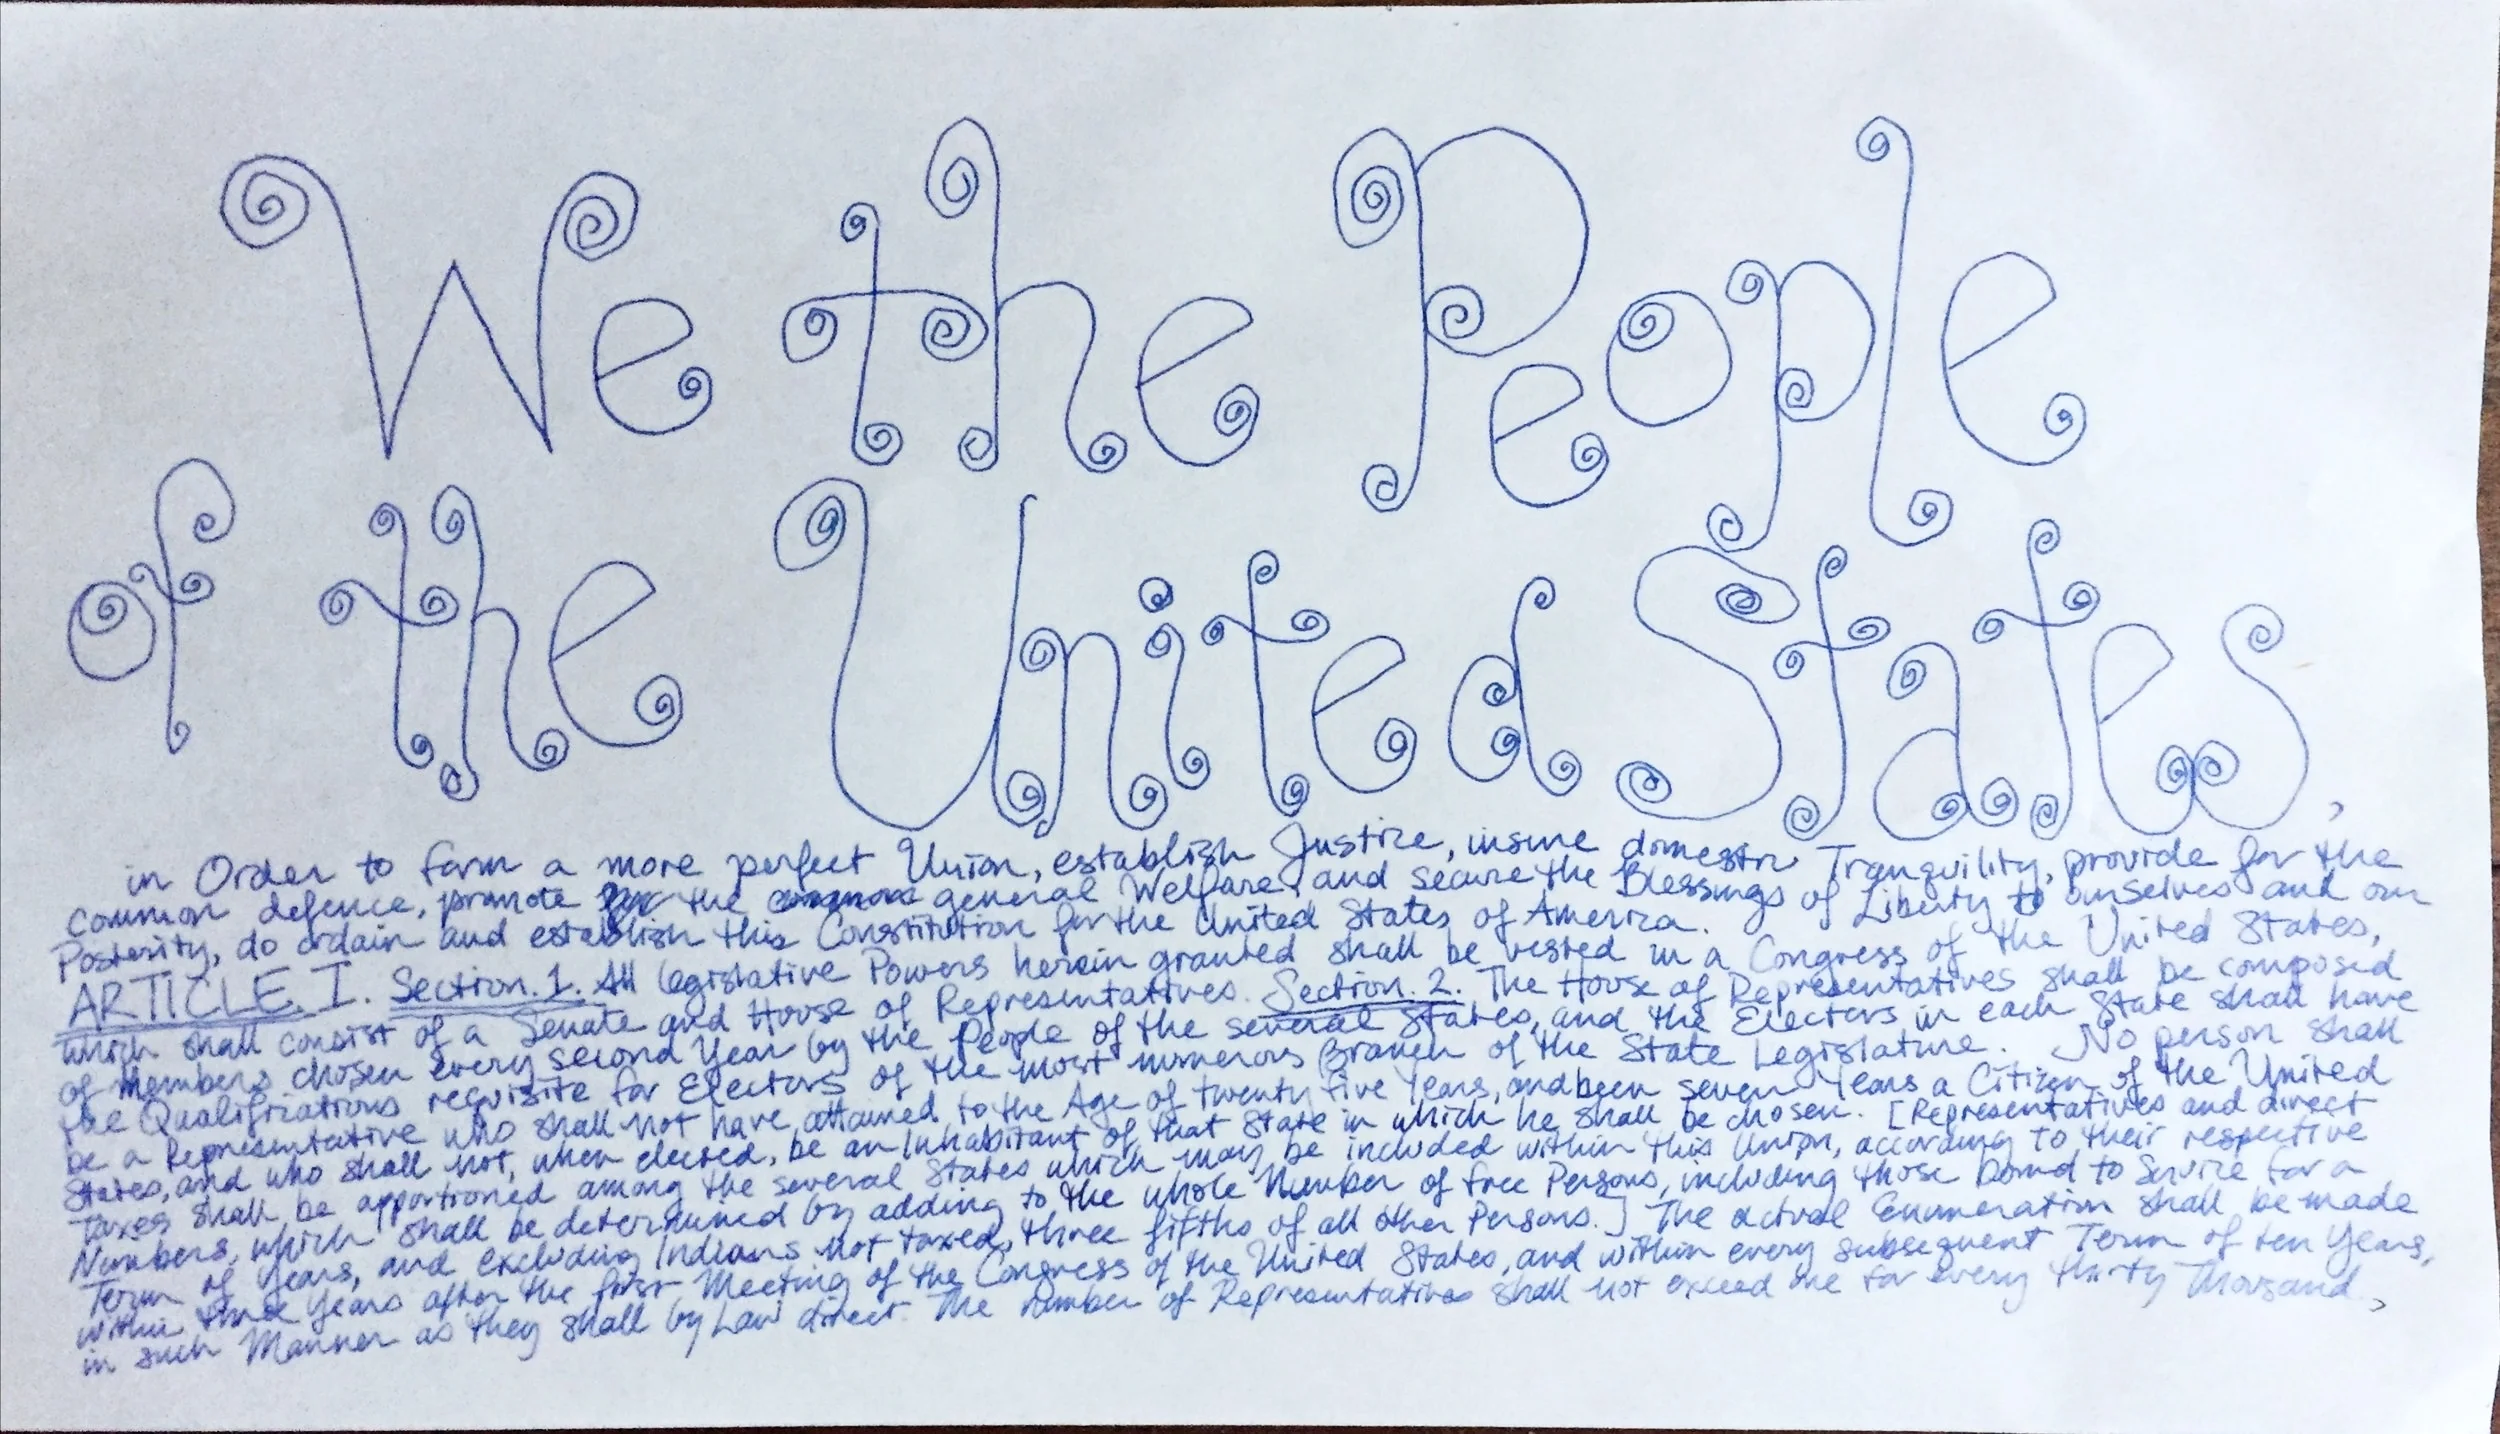 We the People
of the United States,
in Order to form a more perfect Union, establish Justice, insure domestic Tranquility, provide for the
common defence, promote the general Welfare, and secure the Blessings of Liberty to ourselves and our
Posterity, do ordain and establish this Constitution for the United States of America.
ARTICLE. I. Section. 1. All legislative Powers herein granted shall be vested in a Congress of the United States,
which shall consist of a Senate and House of Representatives. Section. 2. The House of Representatives shall be composed
of Members chosen every second Year by the People of the several States, and the Electors in each State shall have
the Qualifications requisite for Electors of the most numerous Branch of the State Legislature. No person shall
be a Representative who shall not have attained to the Age of twenty five Years, and been seven Years a Citizen of the United
States, and who shall not, when elected, be an Inhabitant of that State in which he shall be chosen. [Representatives and direct
Taxes shall be apportioned among the several States which may be included within this Union, according to their respective
Numbers, which shall be determined by adding to the whole Number of free Persons, including those bound to Service for a
Term of Years, and excluding Indians not taxed, three fifths of all other Persons.] The actual Enumeration shall be made
within three Years after the first Meeting of the Congress of the United States, and within every subsequent Term of ten Years,
in such Manner as they shall by Law direct. The number of Representatives shall not exceed one for every thirty Thousand,